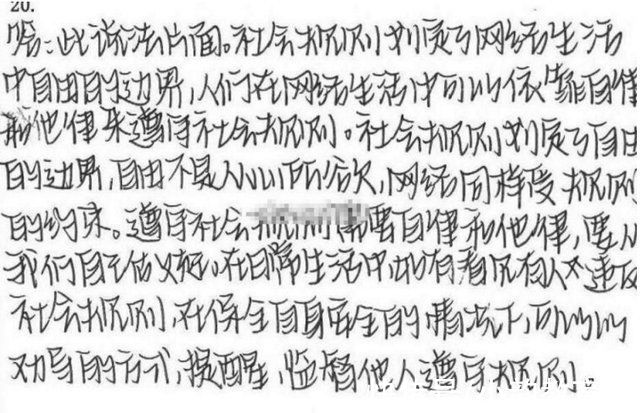 20.
答:此说法片面。社会规则划定了网络生活
中自由的边界,人们在网络生活中可以依靠自律
和他律来遵守社会规则。社会规则划定了自由
的边界,自由不是人心所欲,网络同样受规则
的约束。遵守社会规则需要自律和他律,要从
我们自己做起,在日常生活中,如有看见有人违反
社会规则,在保全自身安全的情况下,可以以
劝导的方式,提醒,监督他人遵守规则